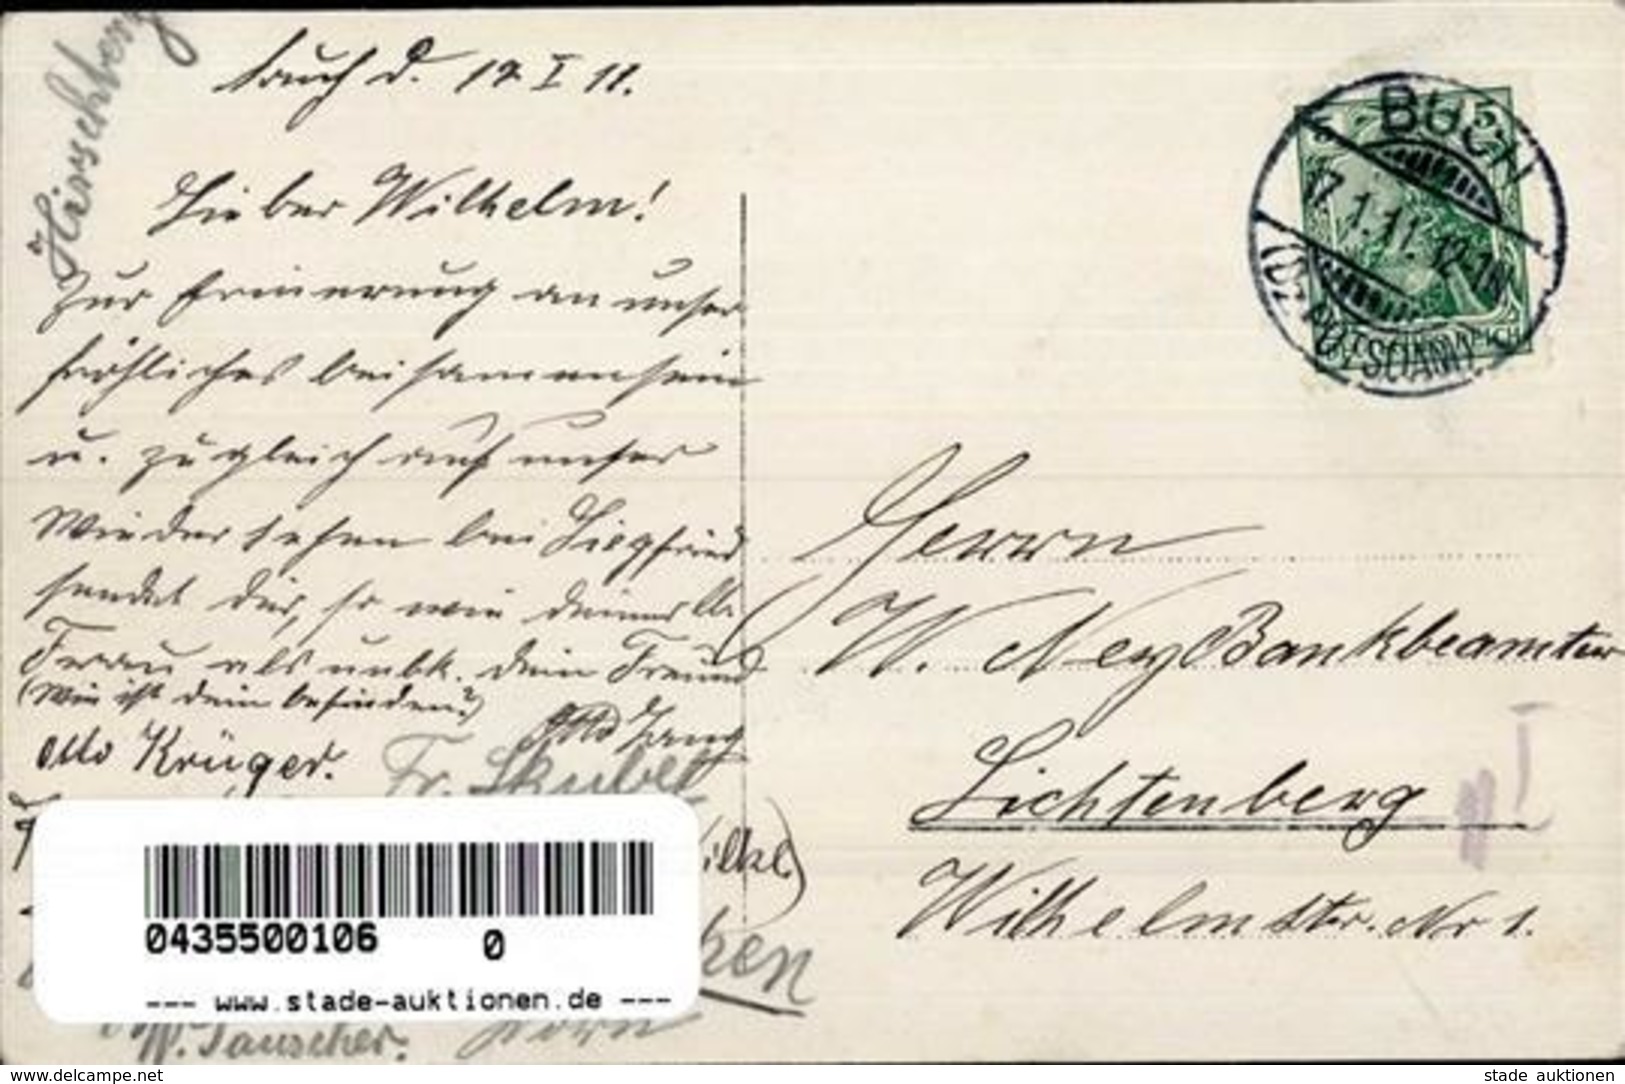 Hirschberg
Buch d. 17. I 11.
Lieber Wilhelm!
Zur Erinnerung an unser
fröhliches beisammensein
u. zugleich auf unser
Wiedersehen bei Siegfried
sendet dir, so wie deiner lb.
Frau als unbk. dein Freund
(Wie ist dein befinden?)
Otto Lang
Otto Krüger.
Fr. Skubel
W. Tauscher.
BUCH
17.1.11. 12-1N
5
Herrn
W. Ney Bankbeamter
Lichtenberg
Wilhelmstr. Nr 1.
0435500106
0
--- www.stade-auktionen.de ---
www.delcampe.net
stade_auktionen